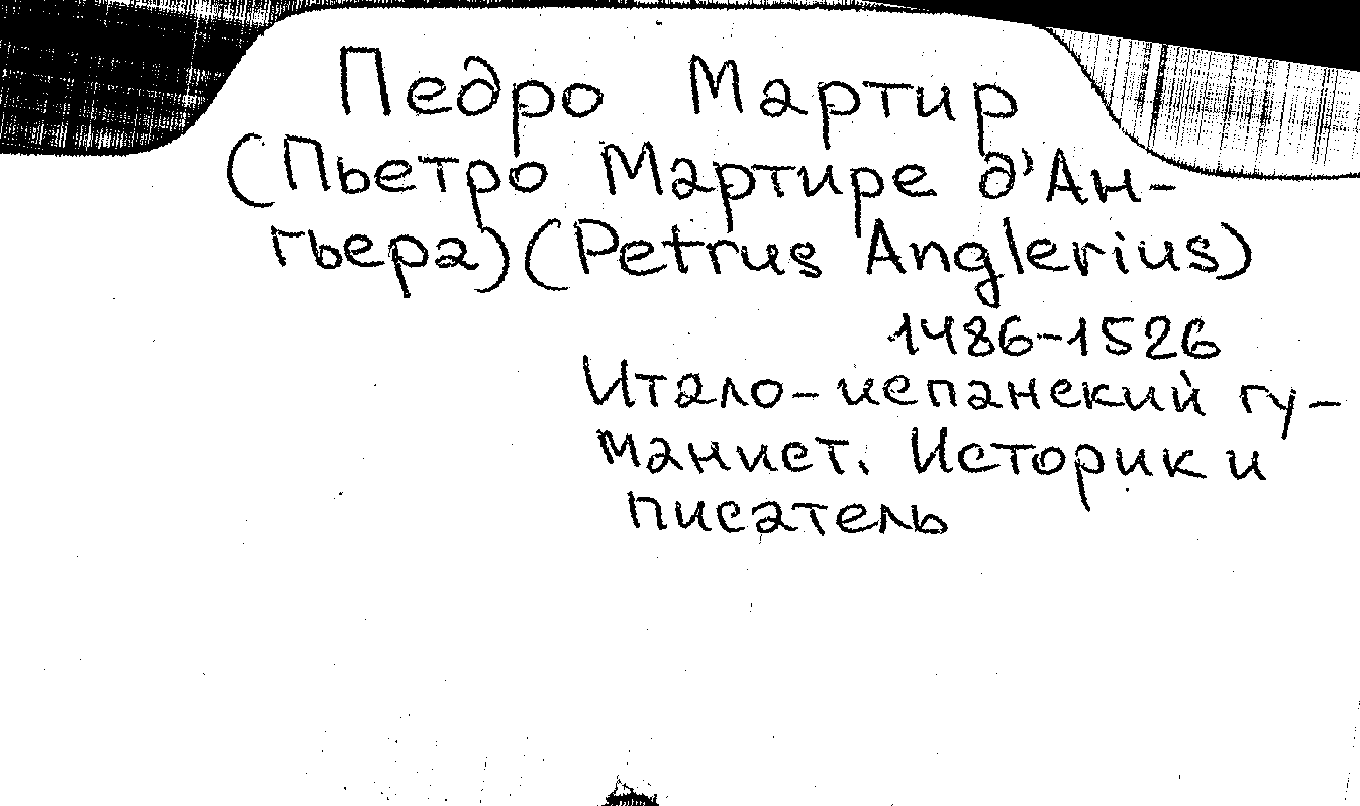 Педро Мартир
(Пьетро Мартире д'Ан-
гьера) (Petrus Anglerius)
1486-1526
Итало-испанский гу-
манист. Историк и
писатель